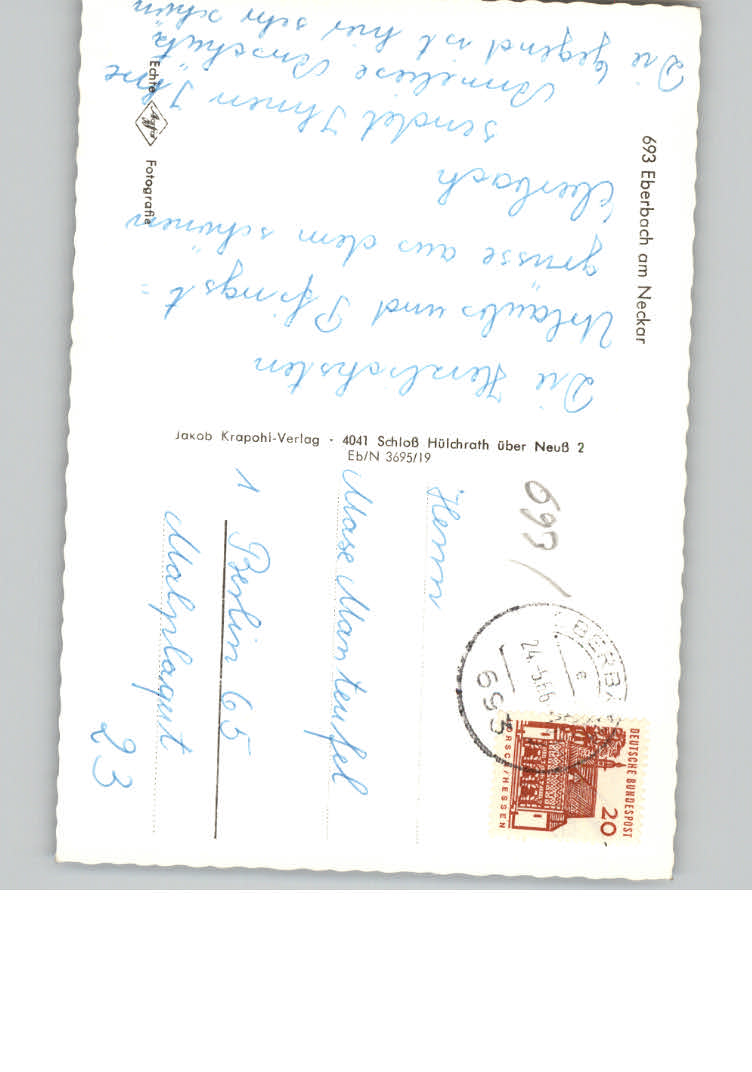 693 Eberbach am Neckar
Die Herzlichsten
Urlaubs und Pfingst=
grüsse aus dem schönen
Eberbach
sendet Ihnen Ihre
Anneliese Anschütz
Die Gegend ist hier sehr schön
Echte Agfa Fotografie
Jakob Krapohl-Verlag · 4041 Schloß Hülchrath über Neuß 2
Eb/N 3695/19
693/
EBERBACH
24.-5.66
693
DEUTSCHE BUNDESPOST
20
LORSCH/HESSEN
Herrn
Manteufel
1 Berlin 65
Malplaquet
23